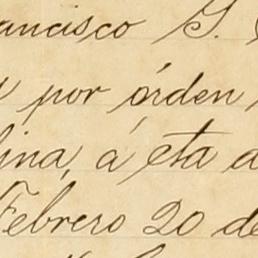 ancisco G.
por órden
lina, á eta d
Febrero 20 de